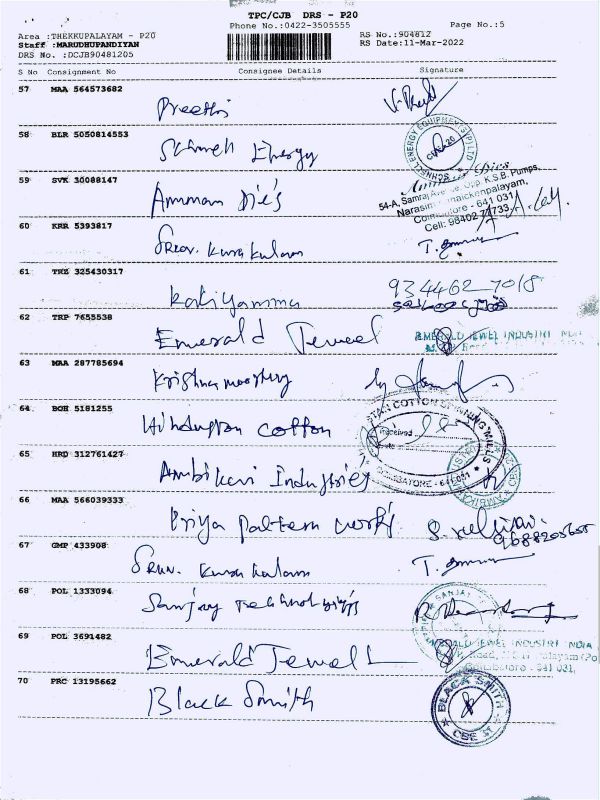 TPC/CJB DRS - P20
Phone No.:0422-3505555 Page No.:5
Area :THEKKUPALAYAM - P20 RS No.:904812
Staff :MARUDHUPANDIYAN RS Date:11-Mar-2022
DRS No. :DCJB90481205
S No Consignment No Consignee Details Signature
57 MAA 564573682
Preethi
58 BLR 5050814553
Energy
SCHNELL ENERGY EQUIPMENTS (P) LTD
59 SVK 30088147
Amman Die's
Amman Dies
54-A, Samraj Avenue, Opp. K.S.B. Pumps,
Narasimmanaickenpalayam,
Coimbatore - 641 031
Cell: 98402
60 KRR 5393817
Kurukulam
61 TRZ 325430317
Kaliyamma
934462 7018
62 TRP 7655538
Emerald Jewel
EMERALD JEWEL INDUSTRY INDIA
63 MAA 287785694
Krishnamoorthy
64 BOH 5181255
Hindustan cotton
COTTON SPINNING MILLS
Received
COIMBATORE - 641 031
65 HRD 312761427
Ambikavi Industries
66 MAA 566039333
Priya pattern works
9688205655
67 GMP 433908
Kurukulam
68 POL 1333094
Sanjay Technologies
SANJAY
69 POL 3691482
Emerald Jewell
EMERALD JEWEL INDUSTRY INDIA
Coimbatore - 641 031.
70 PRC 13195662
Black Smith
BLACK SMITH
CBE-31